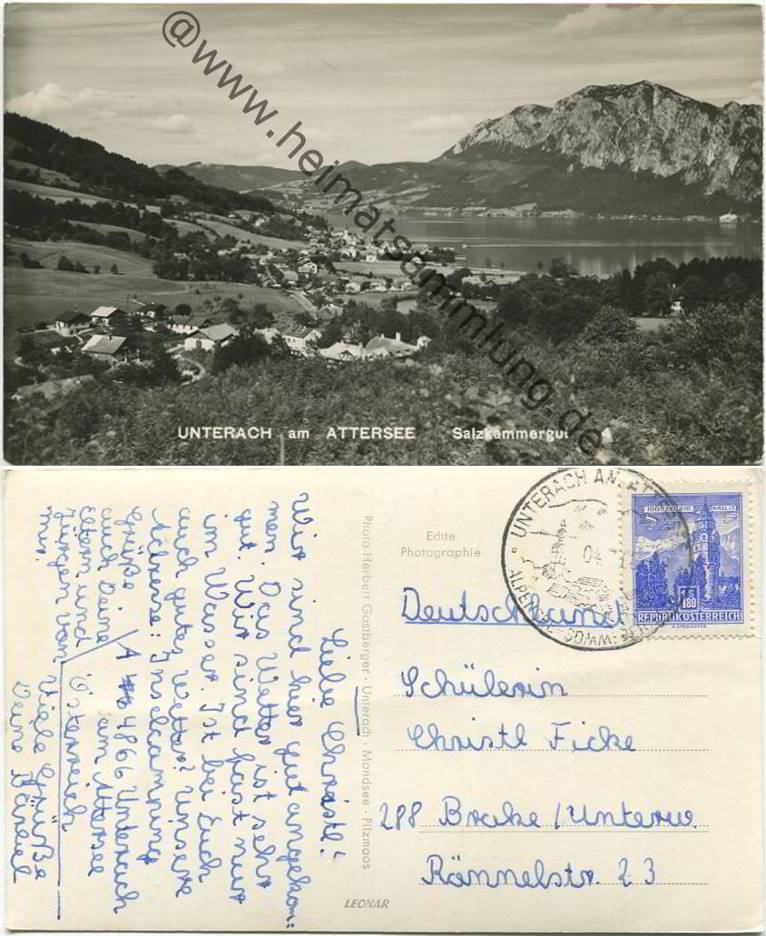 @www.heimatsammlung.de
UNTERACH am ATTERSEE Salzkammergut
Echte
Photographie
UNTERACH AM ATT
04
REPUBLIK ÖSTERREICH
1.80
Deutschland
Schülerin
Christl Ficke
288 Brake / Unterw.
Rönnelstr. 23
Photo Herbert Gastberger · Unterach · Mondsee · Filzmoos
LEONAR
Liebe Christl!
Wir sind hier gut angekom=
men. Das Wetter ist sehr
gut. Wir sind fast nur
im Wasser. Ist bei Euch
auch gutes Wetter? Unsere
Adresse: Inselcamping
A 4866 Unterach
am Attersee
Österreich
Viele Grüße
Deine Bärbel
Grüße
auch Deine
Eltern und
Jürgen von
mir.